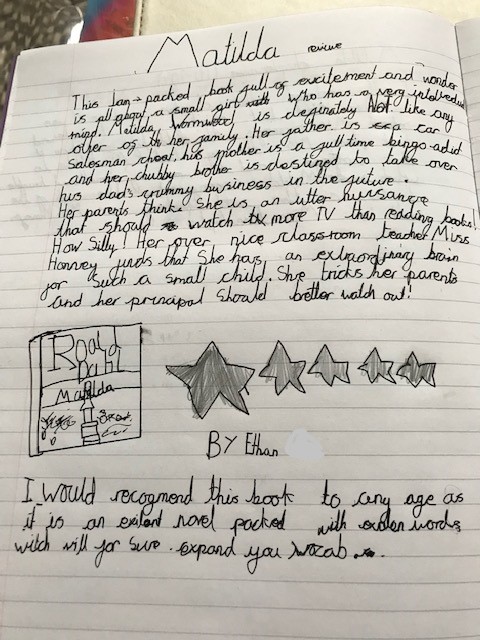 Matilda review
This Jam-packed book full of excitement and wonder
is all about a small girl who has a very intelectual
mind. Matilda wormwood is definately Not like any
other of her family. Her father is a car
salesman cheat, his mother is a full time bingo adict
and her chubby brother is destined to take over
his dad's crummy business in the future.
Her parents think She is an utter nuisance
that should watch tv more TV than reading books!
How Silly! Her over nice classroom teacher Miss
Honney finds that She has an extraordinary brain
for Such a small child. She tricks her parents
and her principal Should better watch out!
Roald
Dahl
Matilda
BY Ethan
I would recogmend this book to any age as
it is an exilent novel packed with words
witch will for sure expand you vocab